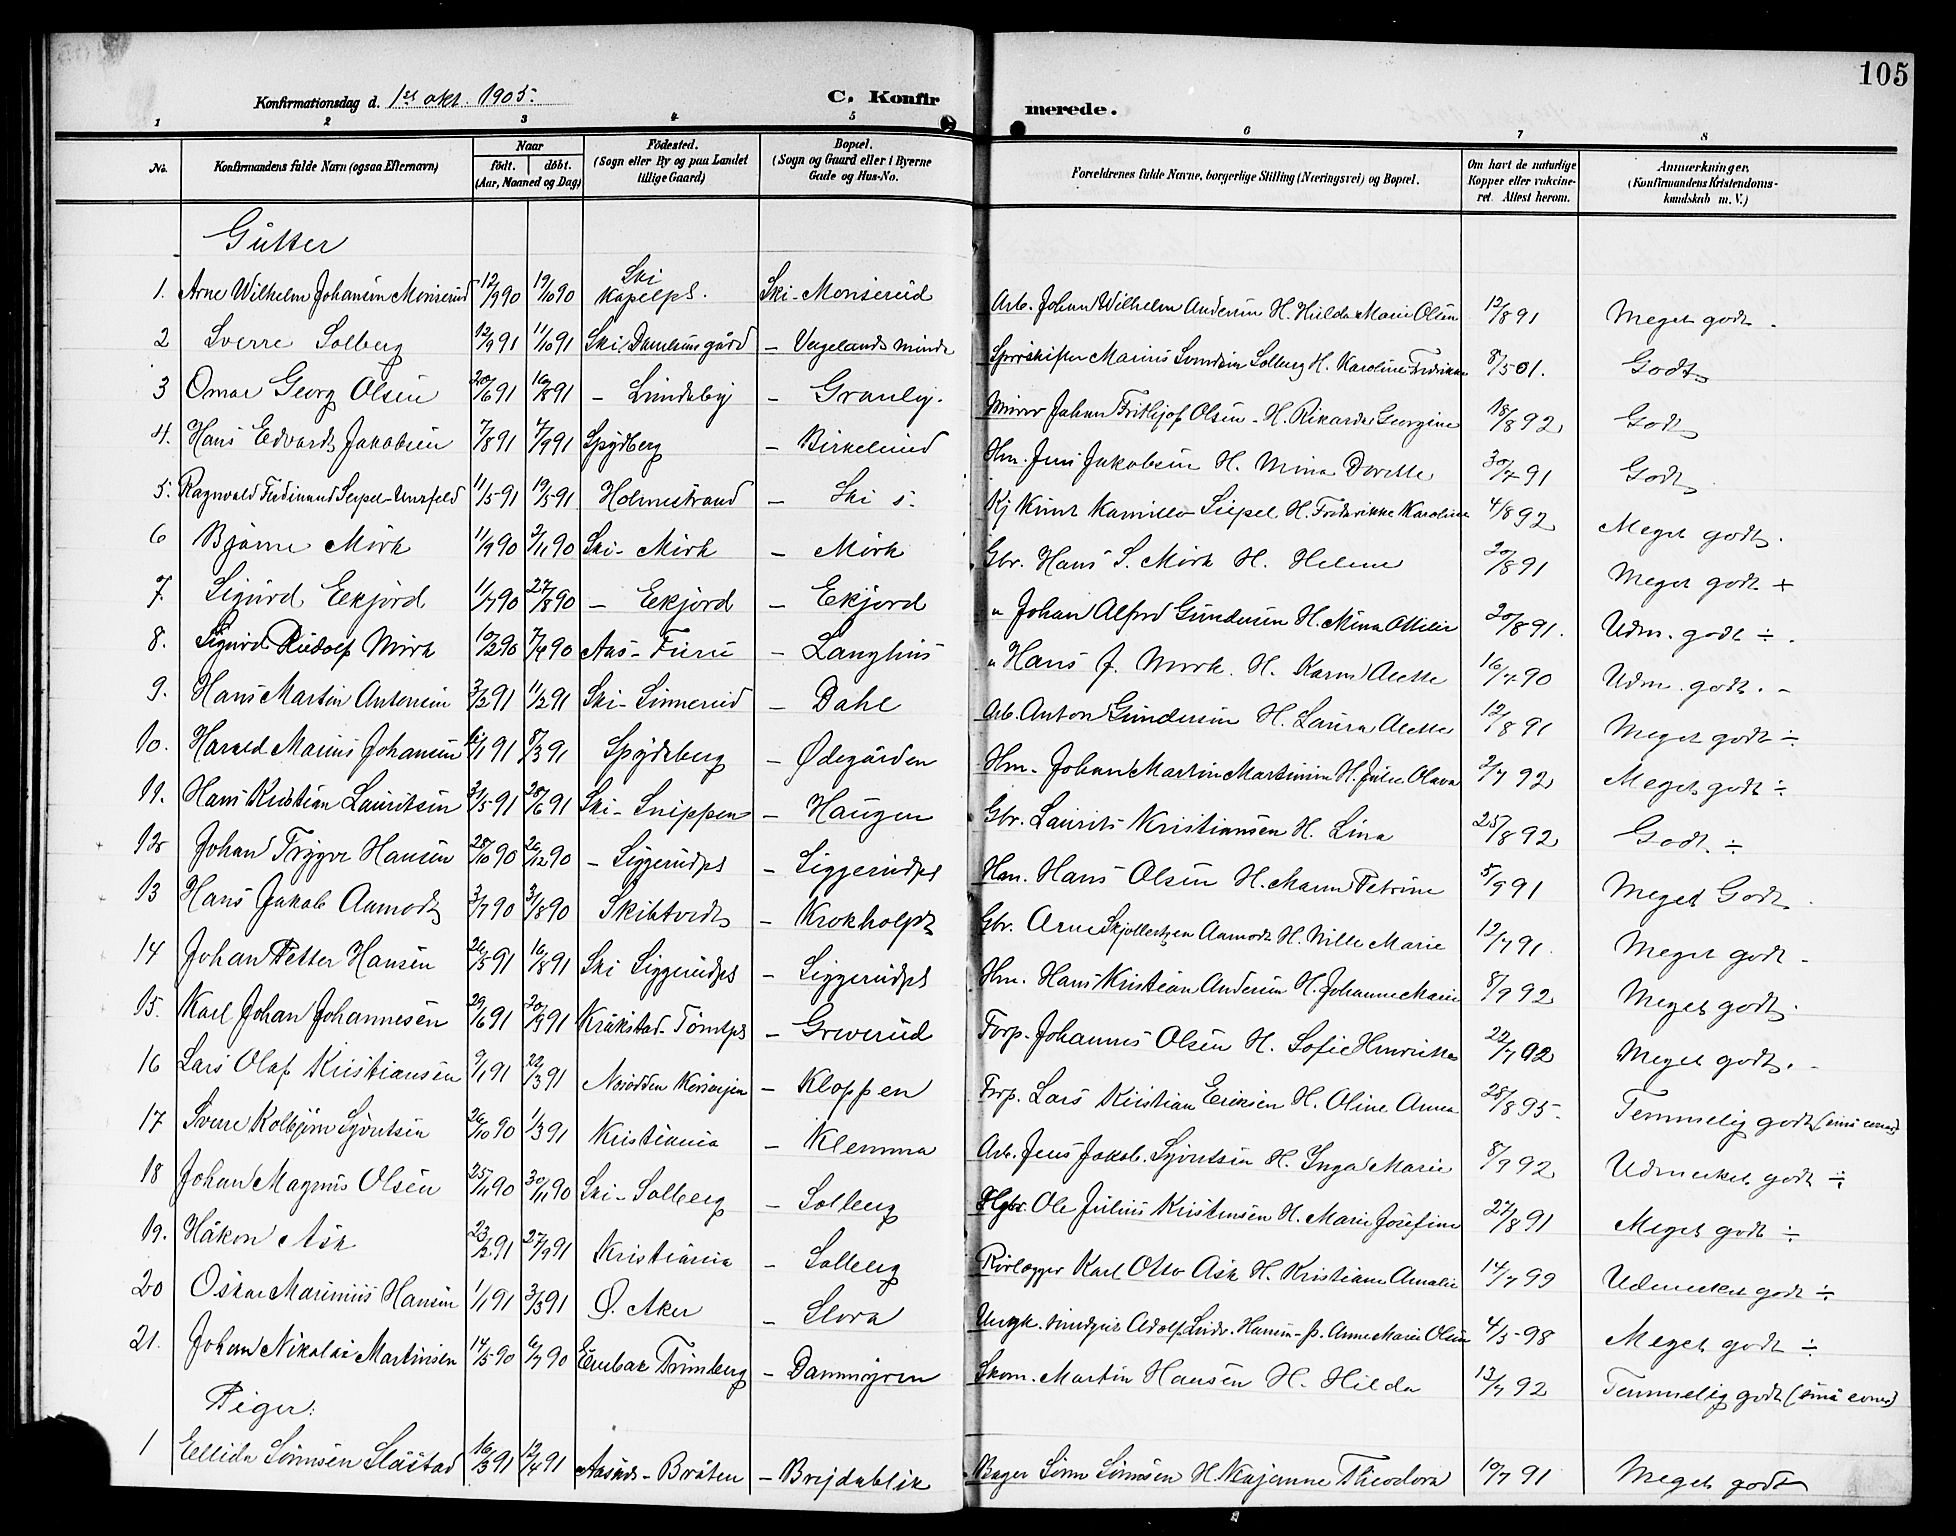 105
Konfirmationsdag d. 1ste okt. 1905.
C. Konfirmerede.
1 2 3 4 5 6 7 8
No. Konfirmandens fulde Navn (ogsaa Efternavn) Naar födt. döbt. (Aar, Maaned og Dag) Födested. (Sogn eller By og paa Landet tillige Gaard) Bopæl. (Sogn og Gaard eller i Byerne Gade og Hus-No. Forældrenes fulde Navne, borgerlige Stilling (Næringsvei) og Bopæl. Om havt de naturlige Kopper eller vakcineret. Attest herom. Anmærkninger. (Konfirmandens Kristendomskundskab m. V.)
Gutter
1. Arne Wilhelm Johansen Monserud 12/9 90 19/10 90 Ski Kapelpl. Ski - Monserud Arb. Johan Wilhelm Andersen H. Hilda Marie Olsen 12/8 91 Meget godt.
2 Sverre Solberg 12/9 91 11/10 91 Ski - Vegelands minde Sporskifter Marius Svendsen Solberg H. Karoline Fredrikke 8/5 01. Godt
3 Omar Georg Olsen 20/6 91 16/8 91 - Lundeby - Granly. Murer Johan Frithjof Olsen - H. Rikarda Georgine 18/8 92 Godt
4. Hans Edvard Jakobsen 7/8 91 7/9 91 Spydberg - Birkelund Hm. Jens Jakobsen H. Mina Dorette 30/7 91 Godt
5. Ragnvald Ferdinand 11/5 91 19/5 91 Holmestrand - Ski s. Kj Knut Kamillo Siepel H. Fredrikke Karoline 4/8 92 Meget godt.
6 Bjarne Mörk 11/9 90 2/11 90 Ski - Mörk - Mörk Gbr. Hans S. Mörk H. Helene 20/8 91 Meget godt +
7. Sigurd Eekjord 11/7 90 27/8 90 - Eekjord - Ekjord " Johan Alfred Gundersen H. Mina Ottilie 20/8 91. Udm. godt ÷.
8. Sigurd Rudolf Mörk 10/2 90 7/4 90 Aas - Furu - Langhus " Hans J. Mörk. H. Karen Alette 16/7 90 Udm. godt. -
9. Hans Martin Antonsen 3/2 91 11/2 91 Ski - Sinnerud - Dahl Arb. Anton Gundersen H. Laura Alette 12/8 91 Meget godt ÷
10. Harald Marius Johansen 91 8/3 91 Spydeberg - Ødegården Hm. Johan Martin Martinsen H. Julie Olava 2/7 92 Meget godt ÷
11. Hans Kristian Lauritsen 31/5 91 28/6 91 Ski - Snippen - Haugen Gbr. Laurits Kristiansen H. Lina 25/8 92 Godt. ÷
12 Johan Trygve Hansen 28/10 90 26/12 90 - Siggerudpl - Siggerudpl Hm. Hans Olsen H. Maren Petrine 5/9 91 Meget Godt
13 Hans Jakob Aamodt 3/7 90 3/8 90 Skibtvedt - Krokholpl Gbr. Arne Skjollertsen Aamodt H. Nille Marie 12/7 91. Meget godt -
14 Johan Petter Hansen 26/5 91 16/8 91 Ski Siggerudpl - Siggerudpl Hm. Hans Kristian Andersen H. Johanne Marie 8/9 92 Meget godt.
15. Karl Johan Johannesen 29/6 91 20/9 91 Kråkstad - Tomtpl - Greverud Forp. Johannes Olsen H. Sofie Henriette 22/7 92 Meget godt.
16 Lars Olaf Kristiansen 9/1 91 22/3 91 Nesodden - Kloppen Forp. Lars Kristian Eriksen H. Oline Anna 28/8 95. Temmelig godt (små evner)
17 Sverre Kolbjörn Syvertsen 26/10 90 1/3 91 Kristiania - Klemma Arb. Jens Jakob. Syvertsen H. Inga Marie 8/9 92 Udmerket godt ÷
18 Johan Magnus Olsen 25/11 90 30/11 90 Ski - Solberg - Solberg Hgbr. Ole Julius Kristensen H. Marie Josefine 27/8 91 Meget godt ÷
19. Håkon Ask 23/2 91 27/9 91 Kristiania - Solberg Rörlægger Karl Otto Ask H. Kristiane Amalie 14/7 99 Udmerket godt ÷
20 Oskar Marinius Hansen 1/1 91 3/3 91 Ø. Aker - Slora Adolf Hansen - Anne Marie Olsen 4/5 98 Meget godt ÷
21. Johan Nikolai Martinsen 14/5 90 6/7 90 Enebak - Dammyren Skom. Martin Hansen H. Hilda 13/7 92 Temmelig godt (små evner)
Piger:
1 Ellida Sörensen Slåstad 16/3 91 12/4 91 Aasuds - Bråten - Brejdablik Bager Sören Sörensen H. Kajanne Theodora 10/7 91 Meget godt